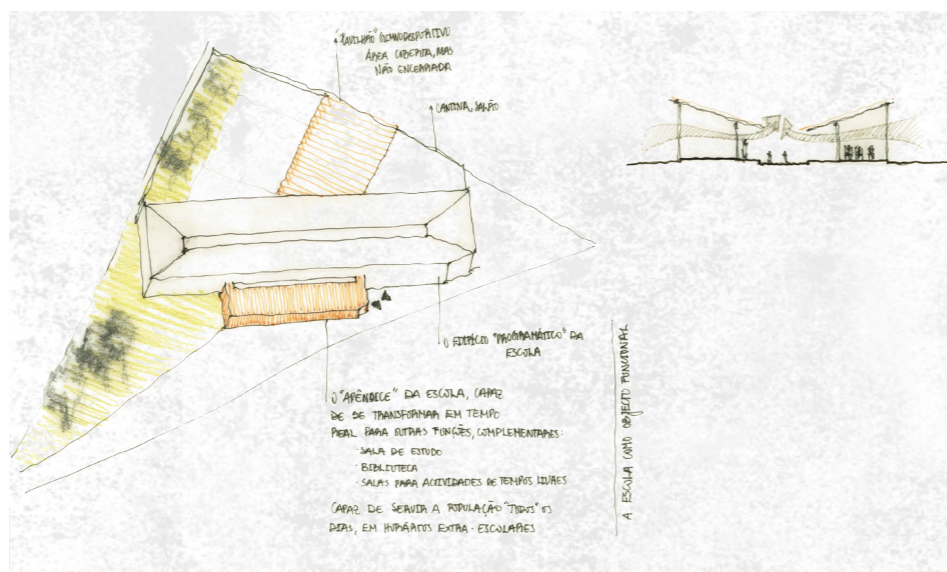 "PAVILHÃO" GIMNODESPORTIVO
ÁREA COBERTA, MAS
NÃO ENCERRADA
CANTINA, SALÃO
O EDIFÍCIO "PROGRAMÁTICO" DA
ESCOLA
O "APÊNDICE" DA ESCOLA, CAPAZ
DE SE TRANSFORMAR EM TEMPO
REAL PARA OUTRAS FUNÇÕES, COMPLEMENTARES:
· SALA DE ESTUDO
· BIBLIOTECA
· SALAS PARA ACTIVIDADES DE TEMPOS LIVRES
CAPAZ DE SERVIR A POPULAÇÃO "TODOS" OS
DIAS, EM HORÁRIOS EXTRA-ESCOLARES
A ESCOLA COMO OBJECTO FUNCIONAL